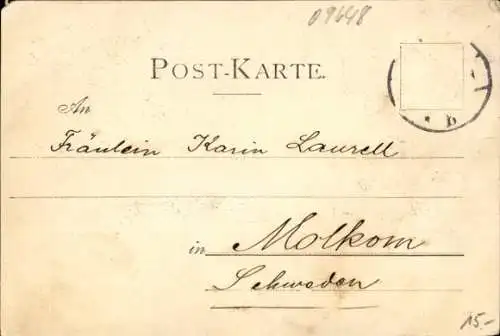 09648
POST-KARTE.
An
Fräulein Karin Laurell
in Molkom
Schweden
b
15.-